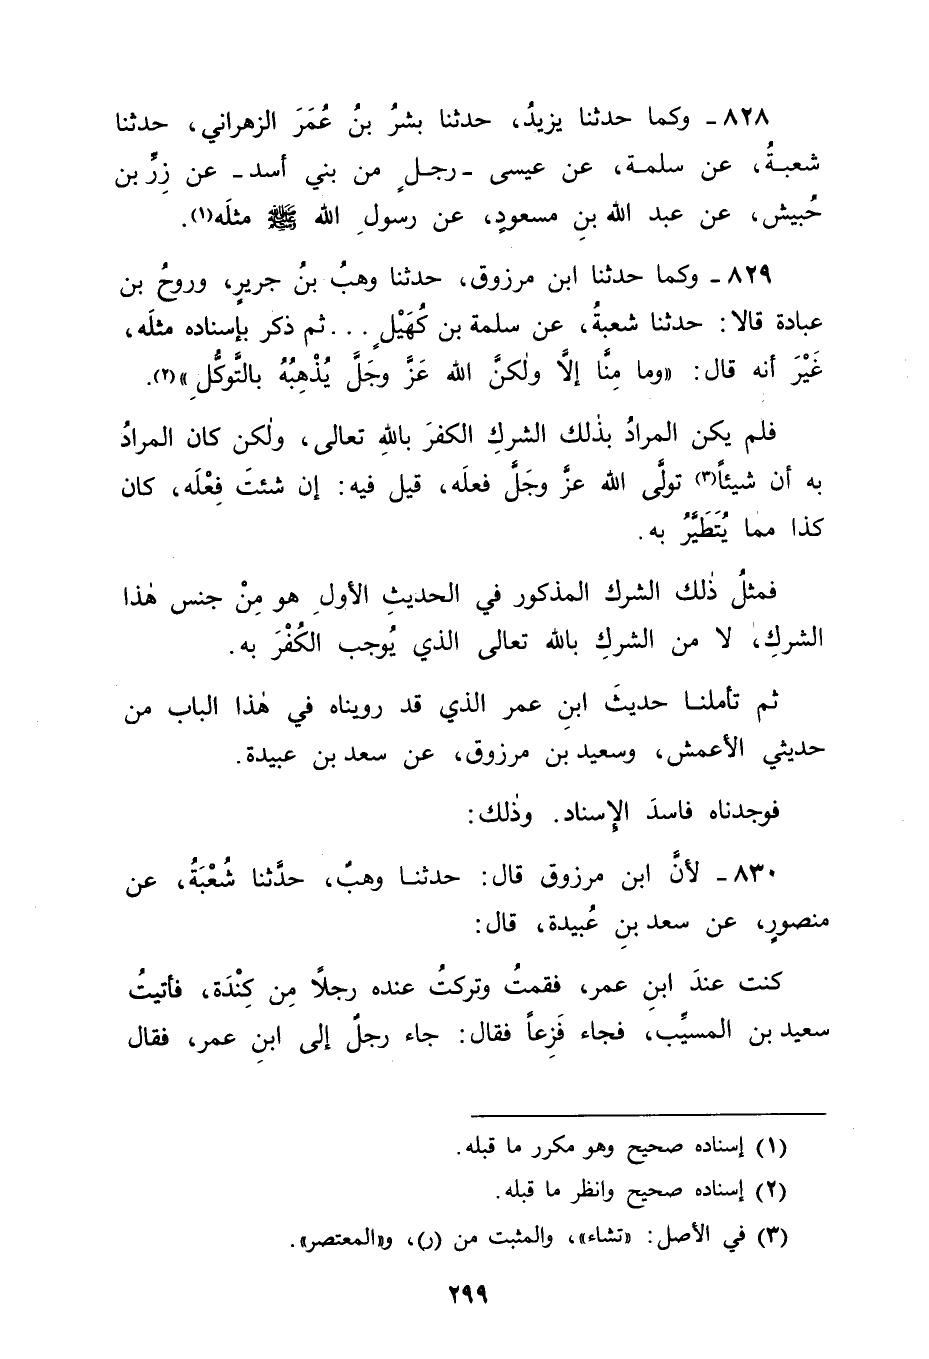 ٨٢٨ ـ وكما حدثنا يزيدُ، حدثنا بشرُ بنُ عُمَرَ الزهراني، حدثنا
شعبـةُ، عن سلمـة، عن عيسى ـ رجـلٍ من بني أسد ـ عن زِرِّ بن
حُبيش، عن عبد الله بنِ مسعودٍ، عن رسولِ الله ﷺ مثلَه(١).
٨٢٩ ـ وكما حدثنا ابن مرزوق، حدثنا وهبُ بنُ جريرٍ، وروحُ بن
عبادة قالا: حدثنا شعبةُ، عن سلمة بن كُهَيْلٍ ... ثم ذكر بإسناده مثلَه،
غَيْرَ أنه قال: «وما مِنَّا إلَّا ولٰكنَّ الله عَزَّ وجَلَّ يُذْهِبُهُ بالتَّوكُّلِ»(٢).
فلم يكن المرادُ بذٰلك الشركِ الكفرَ باللهِ تعالى، ولٰكن كان المرادُ
به أن شيئاً(٣) تولَّى الله عزَّ وجَلَّ فعلَه، قيل فيه: إن شئتَ فِعْلَه، كان
كذا مما يُتَطَيَّرُ به.
فمثلُ ذٰلك الشرك المذكور في الحديثِ الأولِ هو مِنْ جنس هٰذا
الشركِ، لا من الشركِ بالله تعالى الذي يُوجب الكُفْرَ به.
ثم تأملنـا حديثَ ابنِ عمر الذي قد رويناه في هٰذا الباب من
حديثي الأعمش، وسعيد بن مرزوق، عن سعد بن عبيدة.
فوجدناه فاسدَ الإِسناد. وذٰلك:
٨٣٠ ـ لأنَّ ابن مرزوق قال: حدثنـا وهبٌ، حدَّثنا شُعْبَةُ، عن
منصورٍ، عن سعد بنِ عُبيدة، قال:
كنت عندَ ابنِ عمر، فقمتُ وتركتُ عنده رجلاً مِن كِنْدَة، فأتيتُ
سعيد بن المسيِّب، فجاء فَزِعاً فقال: جاء رجلٌ إلى ابنِ عمر، فقال
(١) إسناده صحيح وهو مكرر ما قبله.
(٢) إسناده صحيح وانظر ما قبله.
(٣) في الأصل: «تشاء»، والمثبت من (ر)، و«المعتصر».
٢٩٩